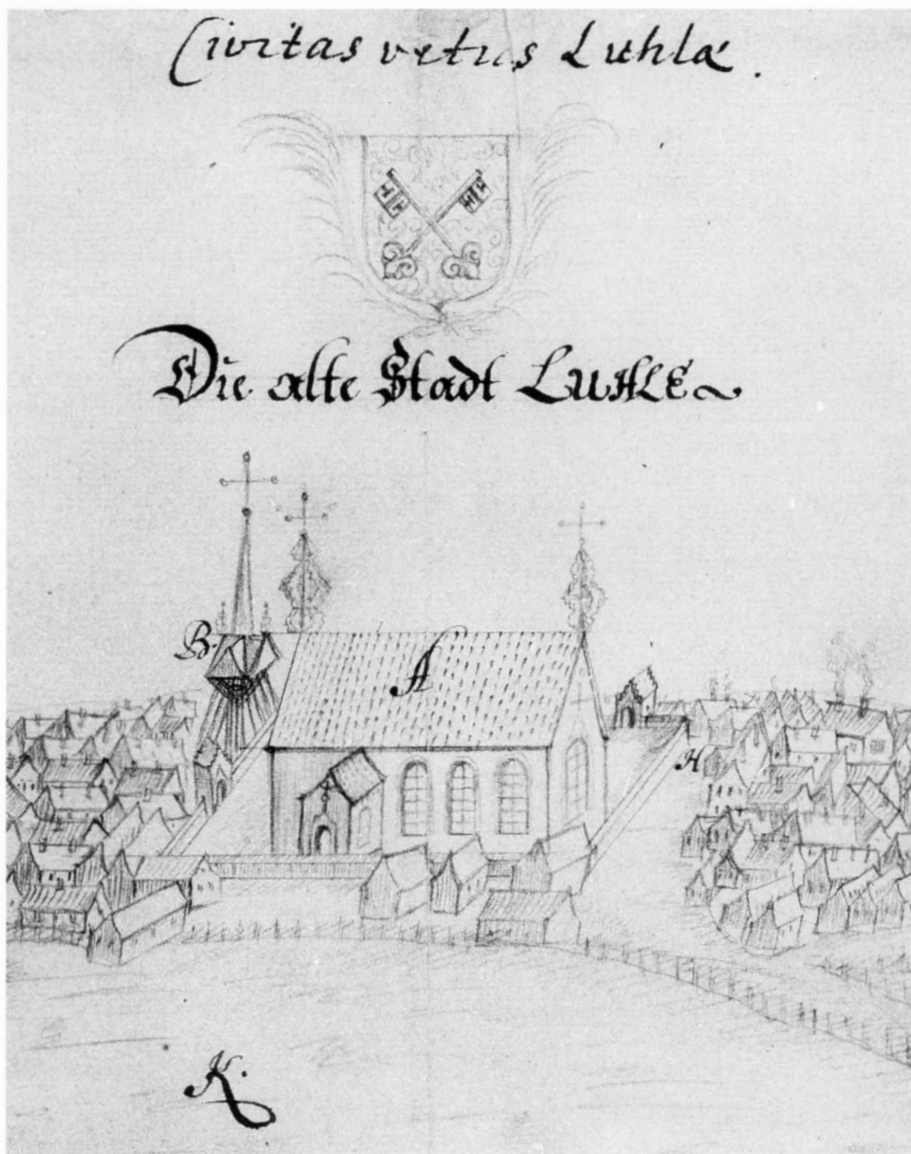 Civitas vetus Luhlæ.
Die alte Stadt LUHLE
B.
A
H
K.